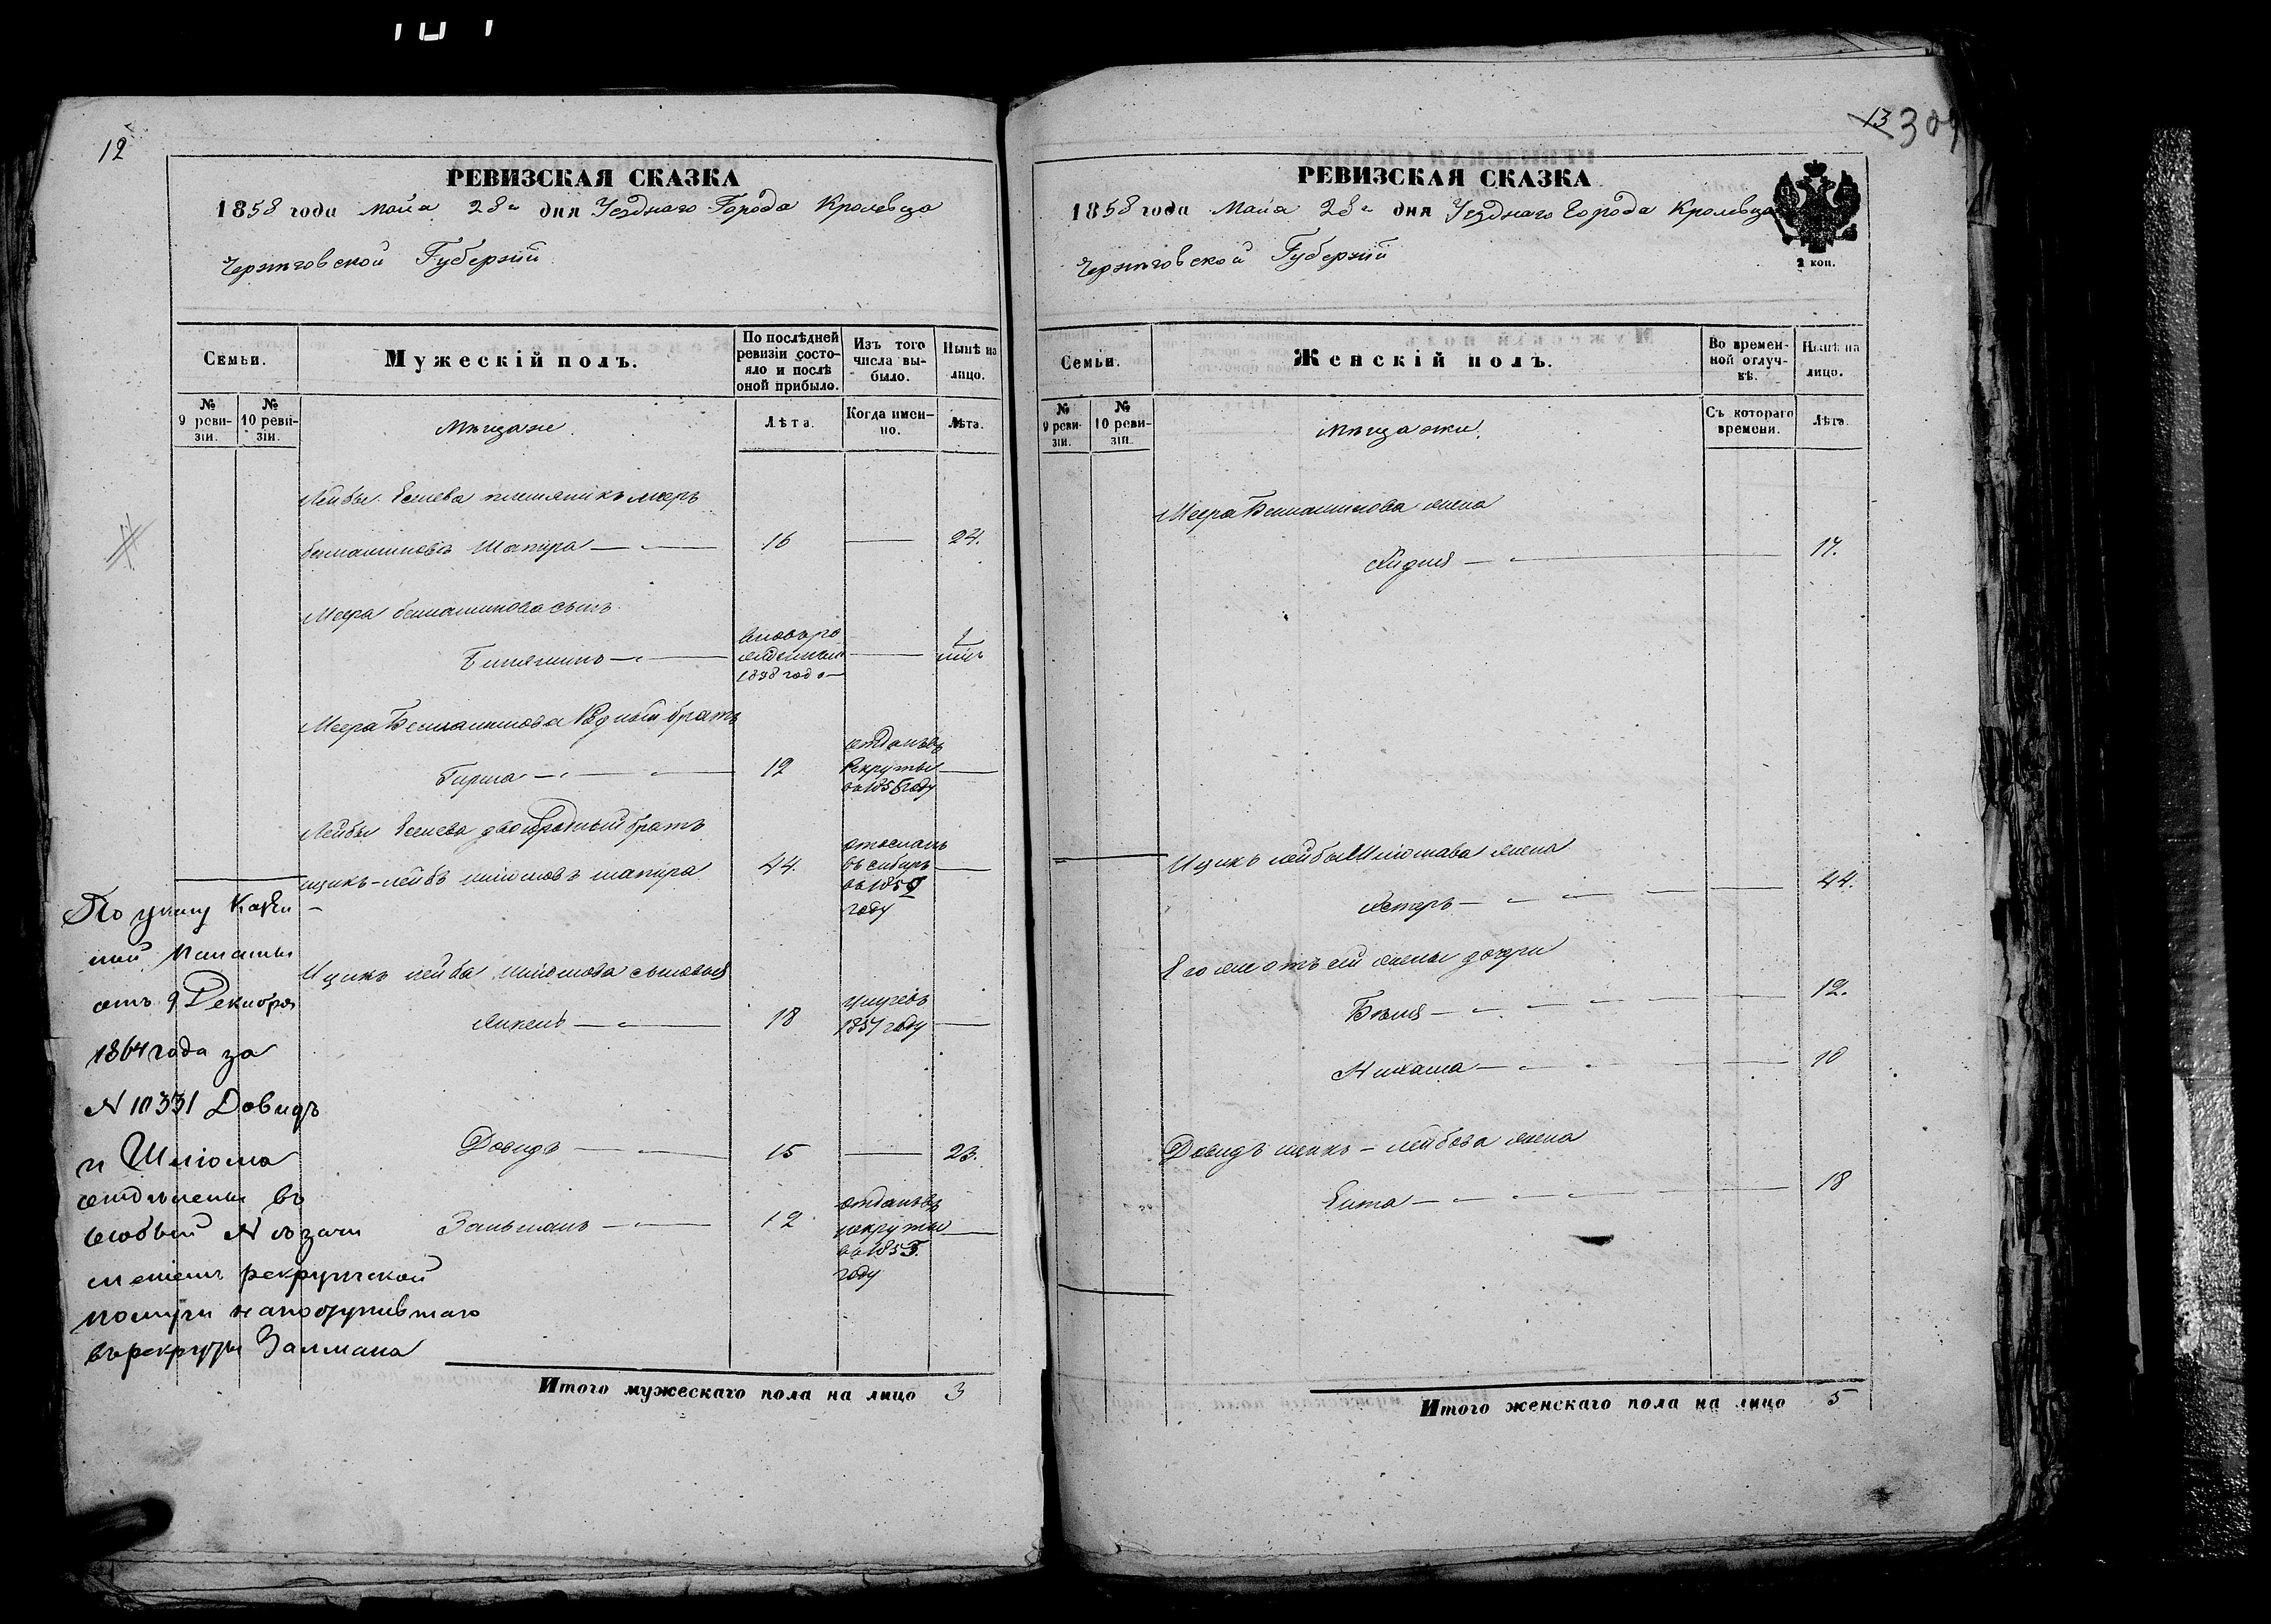 12
РЕВИЗСКАЯ СКАЗКА
1858 года Мая 28го дня Уезднаго Города Кролевца
Черниговской Губернии
Семьи.
Мужескій полъ.
По послѣдней ревизіи состояло и послѣ оной прибыло.
Изъ того числа выбыло.
Нынѣ на лицо.
№ 9 ревизіи.
№ 10 ревизіи.
Мѣщане.
Лѣта.
Когда именно.
Лѣта.
Лейбы Есиева племяникъ Мееръ
Бениаминовъ Шапира 16 24.
Меера Бениаминова сынъ
Бениаминъ
вновь рожденный
1858 года
1
Меера Бениаминова Родный братъ
Гирша 12
отданъ въ
Рекруты
въ 1855 году
Лейбы Есиева двоюродный братъ
Ицикъ-Лейбъ Шліомовъ Шапира 44.
отосланъ
въ сибирь
въ 185
году
Ицикъ Лейба Шліомова сыновья
Янкель 18
умре въ
1857 году
Довидъ 15 23.
Зальманъ 12
отданъ въ
рекруты
въ 1853.
году
По указу Казен
ной Палаты
отъ 9 Декабря
1864 года за
N 10331 Довидъ
и Шліома
отдѣлены въ
особый N
рекрутской
поступившаго
въ рекруты Залмана
Итого мужескаго пола на лицо 3
13 309
РЕВИЗСКАЯ СКАЗКА
1858 года Мая 28го дня Уезднаго Города Кролевца
Черниговской Губернии
2 коп.
Семьи.
Женскій полъ.
Во временной отлучкѣ.
Нынѣ на лицо.
№ 9 ревизіи.
№ 10 ревизіи.
Мѣщанки.
Съ котораго времени.
Лѣта.
Меера Бениаминова жена
17.
Ицикъ Лейбы Шліомова жена
Естеръ 44.
Его же отъ сей жены дочери
Бѣля 12.
10
Довидъ Ицикъ-Лейбова жена
18
Итого женскаго пола на лицо 5